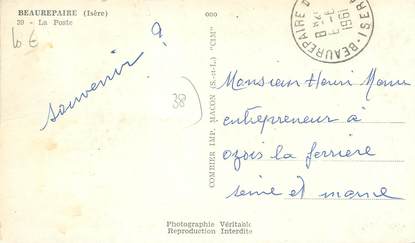 BEAUREPAIRE (Isère)
39 - La Poste
10 €
souvenir ?
38
COMBIER IMP. MACON (S.-et-L.) "CIM"
BEAUREPAIRE D'ISERE
1961
Monsieur Henri
entrepreneur à
ozois la ferrière
seine et marne
Photographie Véritable
Reproduction Interdite